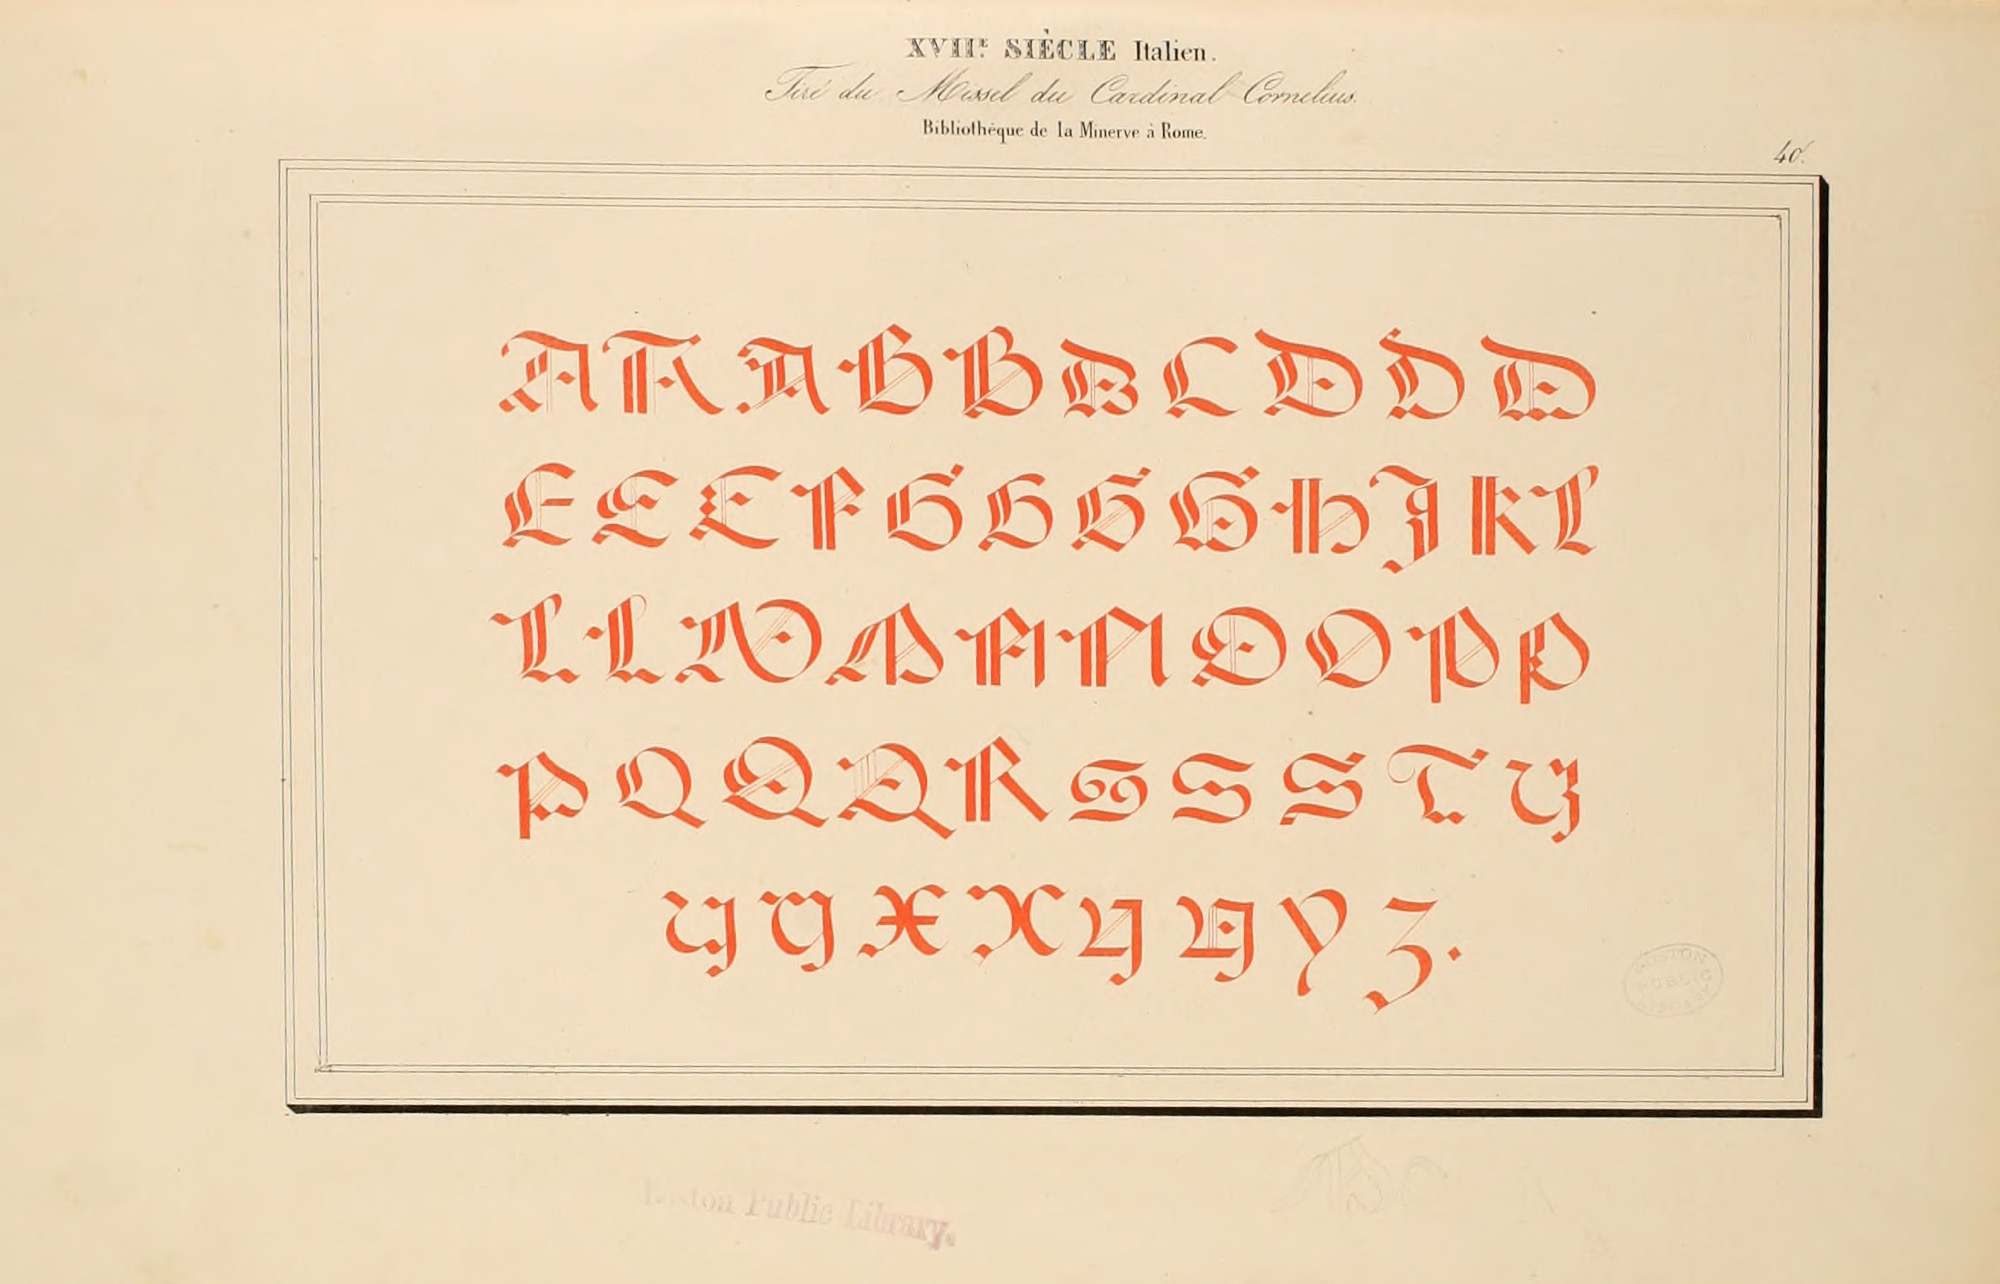 XVIIᴱ. SIÈCLE Italien.
Tiré du Missel du Cardinal Cornelius.
Bibliothèque de la Minerve à Rome.
40.
A A A B B B C D D D
E E E F G G G G H I K L
L L M M N N O O P P
P Q Q Q R S S S T U
U U X X Y Y Y Z.
BOSTON PUBLIC LIBRARY
Boston Public Library.